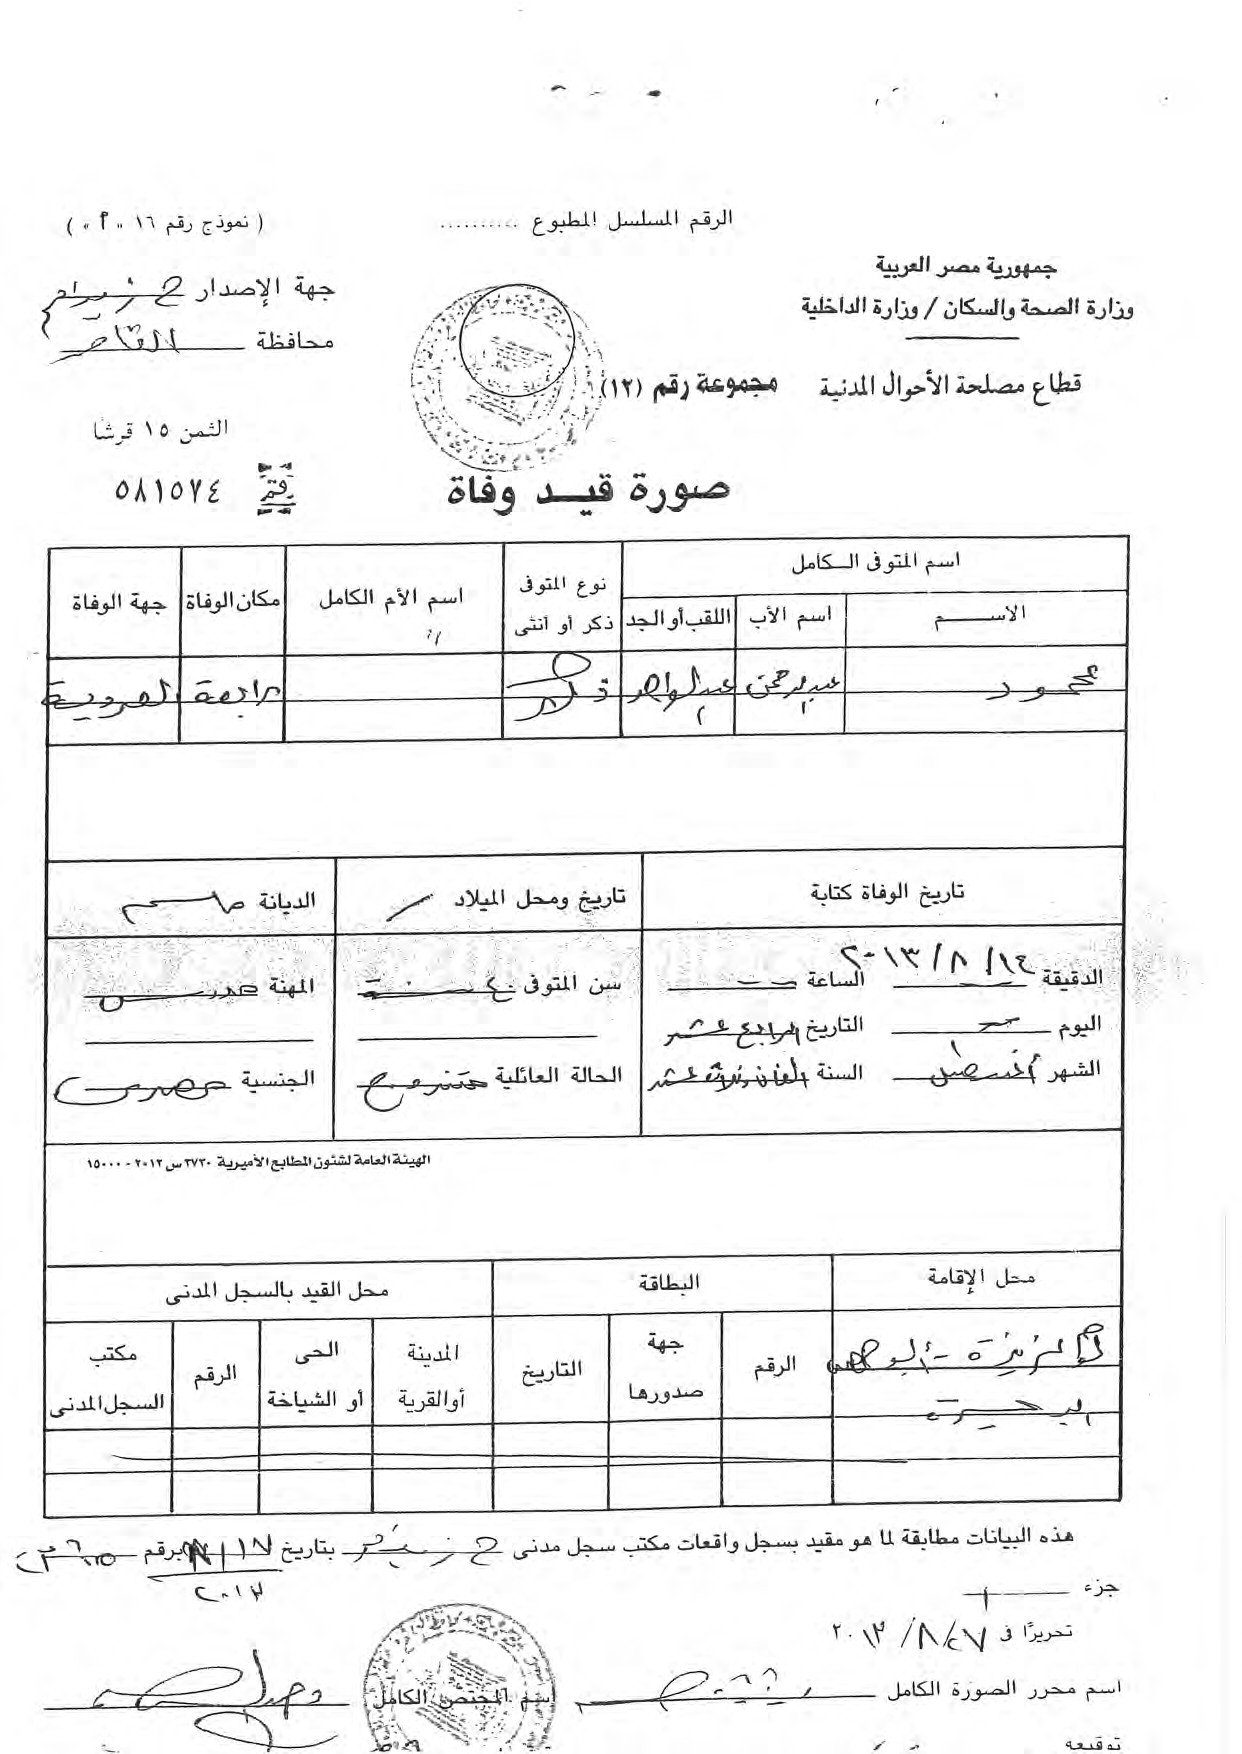 الرقم المسلسل المطبوع ..........
( نموذج رقم ١٦ « أ » )
جمهورية مصر العربية
وزارة الصحة والسكان / وزارة الداخلية
قطاع مصلحة الأحوال المدنية
مجموعة رقم (١٢)
جهة الإصدار
محافظة القاهرة
الثمن ١٥ قرشا
رقم ٥٨١٥٧٤
صورة قيد وفاة
اسم المتوفى الكامل
الاسم
اسم الأب
اللقب أو الجد
نوع المتوفى ذكر أو أنثى
اسم الأم الكامل
مكان الوفاة
جهة الوفاة
محمود
عبد الرحمن
عبد الواحد
ذكر
رابعة
العدوية
تاريخ الوفاة كتابة
تاريخ ومحل الميلاد
الديانة مسلم
١٤ / ٨ / ٢٠١٣
الدقيقة
الساعة
سن المتوفى ٤٠ سنة
المهنة مدرس
اليوم
التاريخ الرابع عشر
الشهر أغسطس
السنة ألفان وثلاثة عشر
الحالة العائلية متزوج
الجنسية مصرى
الهيئة العامة لشئون المطابع الأميرية ٣٧٣٠ س ٢٠١٢ - ١٥٠٠٠
محل الإقامة
البطاقة
محل القيد بالسجل المدنى
الرقم
جهة صدورها
التاريخ
المدينة أو القرية
الحى أو الشياخة
الرقم
مكتب السجل المدنى
البحيرة
هذه البيانات مطابقة لما هو مقيد بسجل واقعات مكتب سجل مدنى بتاريخ برقم
٢٠١٣
جزء
تحريرًا فى ٢٧ / ٨ / ٢٠١٣
اسم محرر الصورة الكامل
اسم المختص الكامل
توقيعه